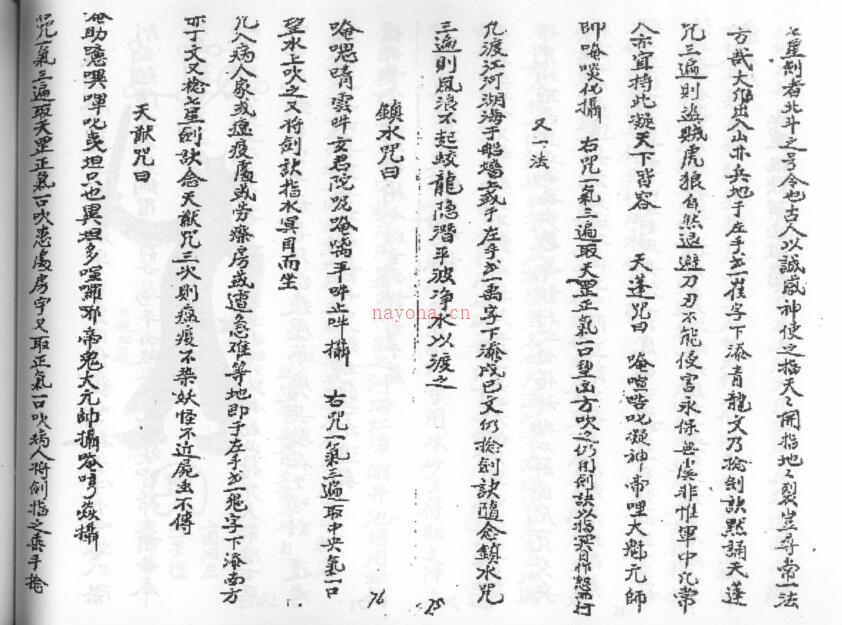 七星劍者北斗之号令也古人以誠感神使之指天天開指地地裂豈尋常一法
方哉大凡出入山井兵地于左手书一崔字下添青龍文乃捻劍訣默誦天蓬
咒三遍則盜賊虎狼自然退避刀刃不能侵害永保無虞非惟軍中凡常
人亦宜持此凝天下皆容 天蓬咒曰 唵 叱凝神帝哩大 元師
帥唵 化攝 右咒一氣三遍取天罡正氣一口望西方吹之仍用劍訣以指
又一法
凡渡江河湖海于船墻上或于左手书一禹字下添戊巳文仍捻劍訣隨念鎖水咒
三遍則風浪不起蛟龍隐潛平波净水以渡之
鎮水咒曰
唵 吽 攝 右咒一氣三遍取中央氣一口
望水上吹之又将劍訣指水冥目而坐
凡入病人家或瘟疫處或劳瘵房或遭急难等地即于左手书一鬼字下添南方
丙丁文又捻七星劍訣念天猷咒三次則瘟疫不染妖怪不近屍虫不傳
天猷咒曰
唵 叱 坦只也異坦多哩囉耶帝鬼大元帥攝唵 攝
咒一氣三遍取天罡正氣一口吹患處房字又取正氣一口吹病人将劍指之乘手
75
76
nayona.cn